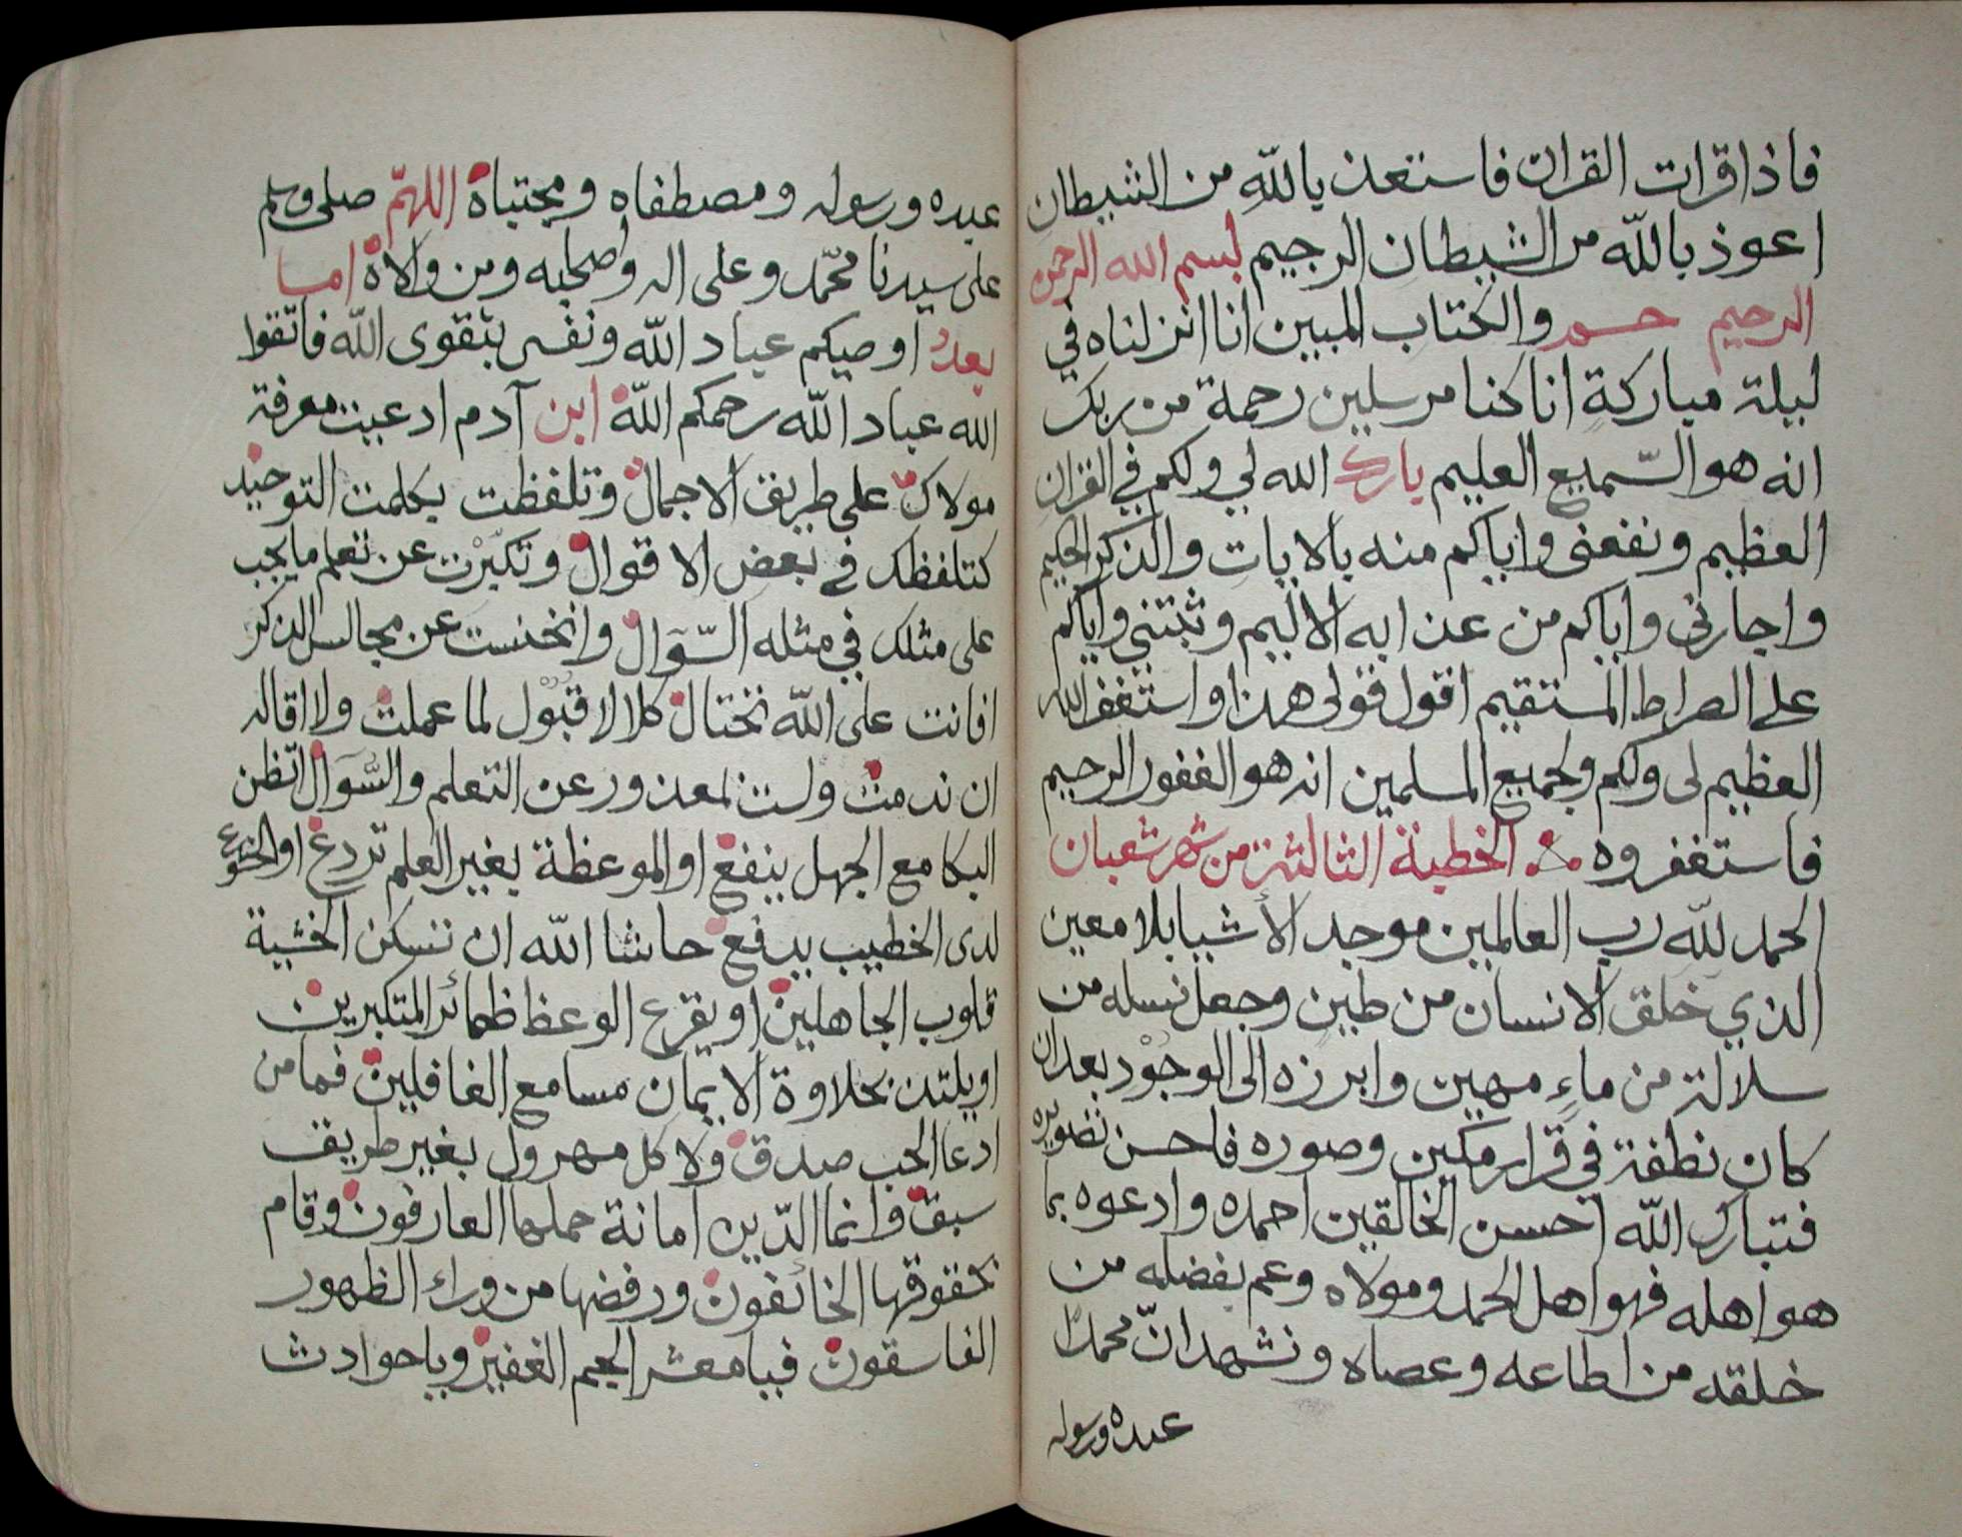 فاذا قرات القران فاستعذ بالله من الشيطان
اعوذ بالله من الشيطان الرجيم بسم الله الرحمن
الرحيم حم والكتاب المبين انا انزلناه في
ليلة مباركة انا كنا مرسلين رحمة من ربك
انه هو السّميع العليم بارك الله لي ولكم في القران
العظيم ونفعني واياكم منه بالايات والذكر الحكيم
واجارني واياكم من عذابه الاليم وثبتني واياكم
على الصراط المستقيم اقول قولي هذا واستغفر الله
العظيم لي ولكم ولجميع المسلمين انه هو الغفور الرحيم
فاستغفروه الخطبة الثالثة من شهر شعبان
الحمد لله رب العالمين موجد الأشيا بلا معين
الذي خلق الانسان من طين وجعل نسله من
سلالة من ماءٍ مهين وابرزه الى الوجود بعد ان
كان نطفة في قرار مكين وصوره فاحسن تصويره
فتبارك الله احسن الخالقين احمده وادعوه بما
هو اهله فهو اهل الحمد ومولاه وعم بفضله من
خلقه من اطاعه وعصاه ونشهد انّ محمدًا
عبده ورسوله
عبده ورسوله ومصطفاه ومجتباه اللهمّ صلى وسلم
على سيدنا محمّد وعلى اله واصحابه ومن والاه اما
بعد اوصيكم عباد الله ونفسي بتقوى الله فاتقوا
الله عباد الله رحمكم الله ابن آدم ادعيت معرفة
مولاك على طريق الاجمال وتلفظت بكلمت التوحيد
كتلفظك في بعض الاقوال وتكبّرت عن تعلم ما يجب
على مثلك في مثله السّوال وانخنست عن مجالس الذكر
افانت على الله تختال كلا لا قبول لما عملت ولا اقاله
ان ندمت ولست لمعذور عن التعلم والسّوال اتظن
البكا مع الجهل ينفع او الموعظة بغير العلم تردع او الخشوع
لدى الخطيب يدفع حاشا الله ان تسكن الخشية
قلوب الجاهلين او يقرع الوعظ ظمائر المتكبرين
او يلتذ بحلاوة الايمان مسامع الغافلين فما من
ادعا الحب صدق ولا كل مهرول بغير طريق
سبق وانما الدّين امانة حملها العارفون وقام
بحقوقها الخائفون ورفضها من وراء الظهور
الفاسقون فيا معشر الجم الغفير ويا حوادث